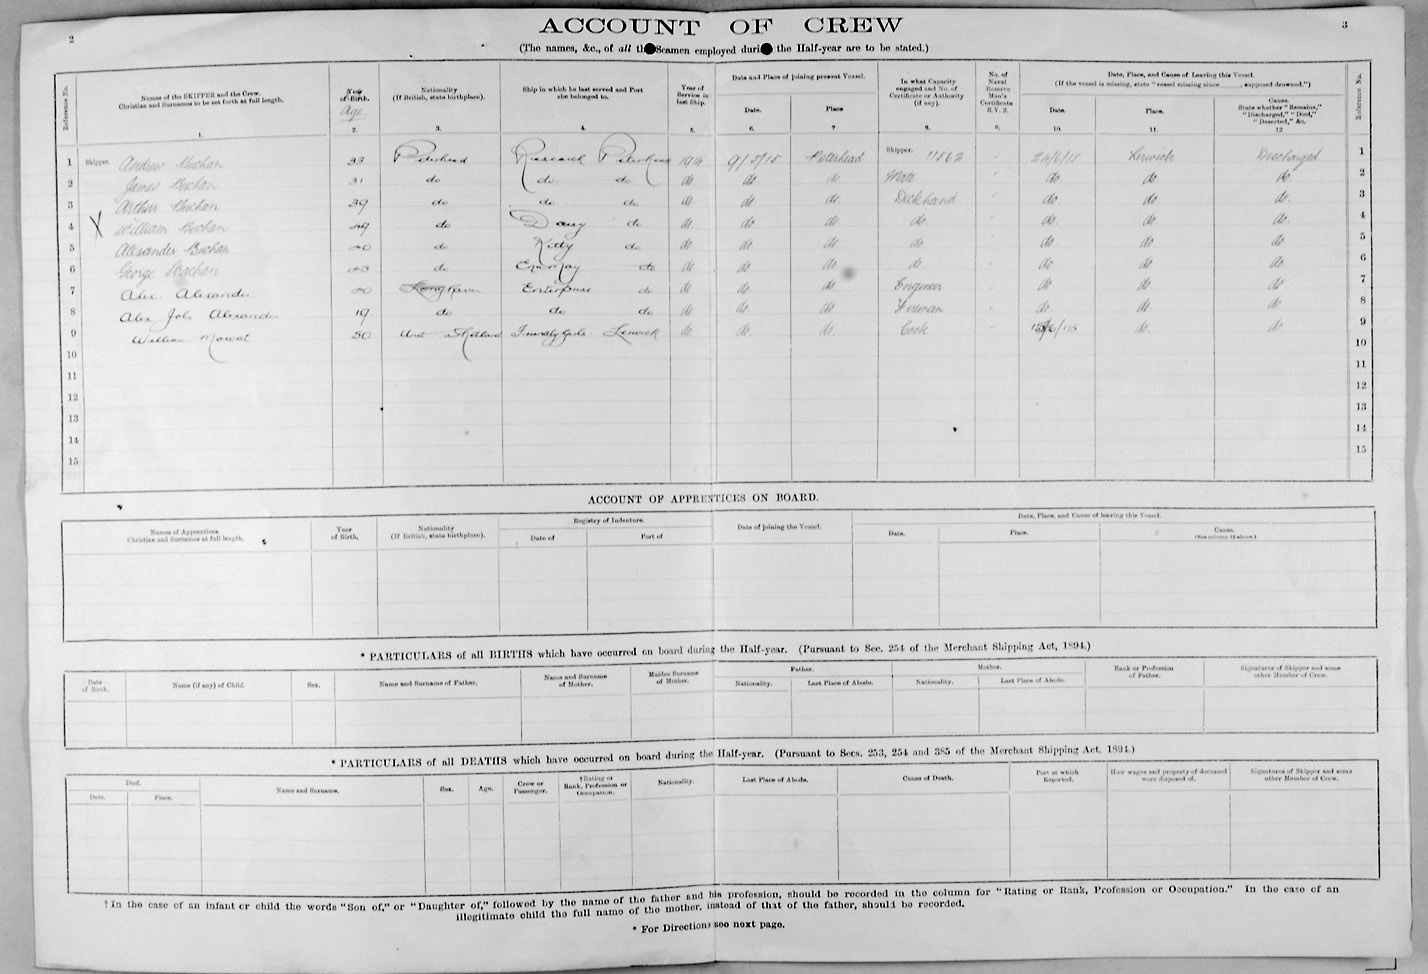 2
ACCOUNT OF CREW
3
(The names, &c., of all the Seamen employed during the Half-year are to be stated.)
Reference No.
Names of the SKIPPER and the Crew. Christian and Surnames to be set forth at full length.
Year of Birth. Age
Nationality (If British, state birthplace).
Ship in which he last served and Port she belonged to.
Year of Service in last Ship.
Date and Place of joining present Vessel.
Date.
Place
In what Capacity engaged and No. of Certificate or Authority (if any).
No. of Naval Reserve Man's Certificate R.V. 2.
Date, Place, and Cause of Leaving this Vessel.
(If the vessel is missing, state "vessel missing since ____, supposed drowned.")
Date.
Place.
Cause. State whether "Remains," "Discharged," "Died," "Deserted," &c.
Reference No.
1. 2. 3. 4. 5. 6. 7 8. 9. 10. 11. 12
1 Skipper. Andrew Buchan 33 Peterhead Research Peterhead 1914 9/3/15 Peterhead Skipper. 11562 24/6/15 Lerwick Discharged 1
2 James Buchan 31 do do do do do do Mate do. do. do. 2
3 Arthur Buchan 39 do do do do. do do Deckhand do. do. do. 3
X 4 William Buchan 49 do Daisy do do. do do do. do do do. 4
5 Alexander Buchan 40 do Kitty do do. do do do do do do 5
6 George Strachan do do do. do do do. do. do do 6
7 Alex. Alexander 40 Enterprise do do do do. Engineer do do do 7
8 Alex John Alexander 19 do do do do do do. Fireman do. do do 8
9 William Mowat 50 Shetland Lerwick do do. do. Cook do. do. 9
10 10
11 11
12 12
13 13
14 14
15 15
ACCOUNT OF APPRENTICES ON BOARD.
Names of Apprentices. Christian and Surnames at full length.
Year of Birth.
Nationality (If British, state birthplace).
Registry of Indenture.
Date of
Port of
Date of joining the Vessel.
Date, Place, and Cause of leaving this Vessel.
Date.
Place.
Cause. (See column 12 above.)
* PARTICULARS of all BIRTHS which have occurred on board during the Half-year. (Pursuant to Sec. 254 of the Merchant Shipping Act, 1894.)
Date of Birth.
Name (if any) of Child.
Sex.
Name and Surname of Father.
Name and Surname of Mother.
Maiden Surname of Mother.
Father.
Nationality.
Last Place of Abode.
Mother.
Nationality.
Last Place of Abode.
Rank or Profession of Father.
Signatures of Skipper and some other Member of Crew.
* PARTICULARS of all DEATHS which have occurred on board during the Half-year. (Pursuant to Secs. 253, 254 and 385 of the Merchant Shipping Act, 1894.)
Died.
Date.
Place.
Name and Surname.
Sex.
Age.
Crew or Passenger.
†Rating or Rank, Profession or Occupation.
Nationality.
Last Place of Abode.
Cause of Death.
Port at which Reported.
How wages and property of deceased were disposed of.
Signatures of Skipper and some other Member of Crew.
† In the case of an infant or child the words "Son of," or "Daughter of," followed by the name of the father and his profession, should be recorded in the column for "Rating or Rank, Profession or Occupation." In the case of an
illegitimate child the full name of the mother, instead of that of the father, should be recorded.
* For Directions see next page.